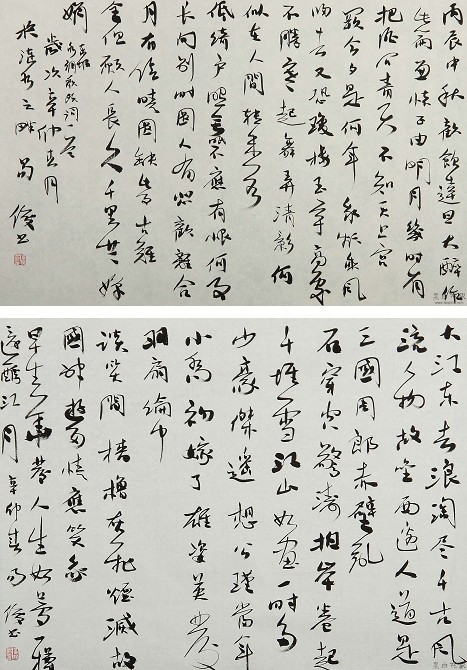 丙辰中秋歡飲達旦大醉作
此篇兼懷子由明月幾時有
把酒問青天不知天上宮
闕今夕是何年我欲乘風
歸去又恐瓊樓玉宇高處
不勝寒起舞弄清影何
似在人間轉朱閣
低綺戶照無眠不應有恨何事
長向別時圓人有悲歡離合
月有陰晴圓缺此事古難
全但願人長久千里共嬋
娟
水調歌頭詞一首
歲次辛卯春月
之畔 俊書
大江東去浪淘盡千古風
流人物故壘西邊人道是
三國周郎赤壁亂
石穿空驚濤拍岸卷起
千堆雪江山如畫一時多
少豪傑遙想公瑾當年
小喬初嫁了雄姿英發
羽扇綸巾
談笑間檣櫓灰飛煙滅故
國神遊多情應笑我
早生華髮人生如夢一樽
還酹江月 辛卯春月 俊書